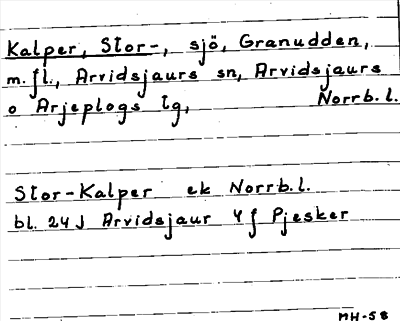 Kalper, Stor-, sjö, Granudden,
m.fl., Arvidsjaurs sn, Arvidsjaurs
o Arjeplogs tg, Norrb.l.
Stor-Kalper ek Norrb.l.
bl. 24J Arvidsjaur 4f Pjesker
MH-58